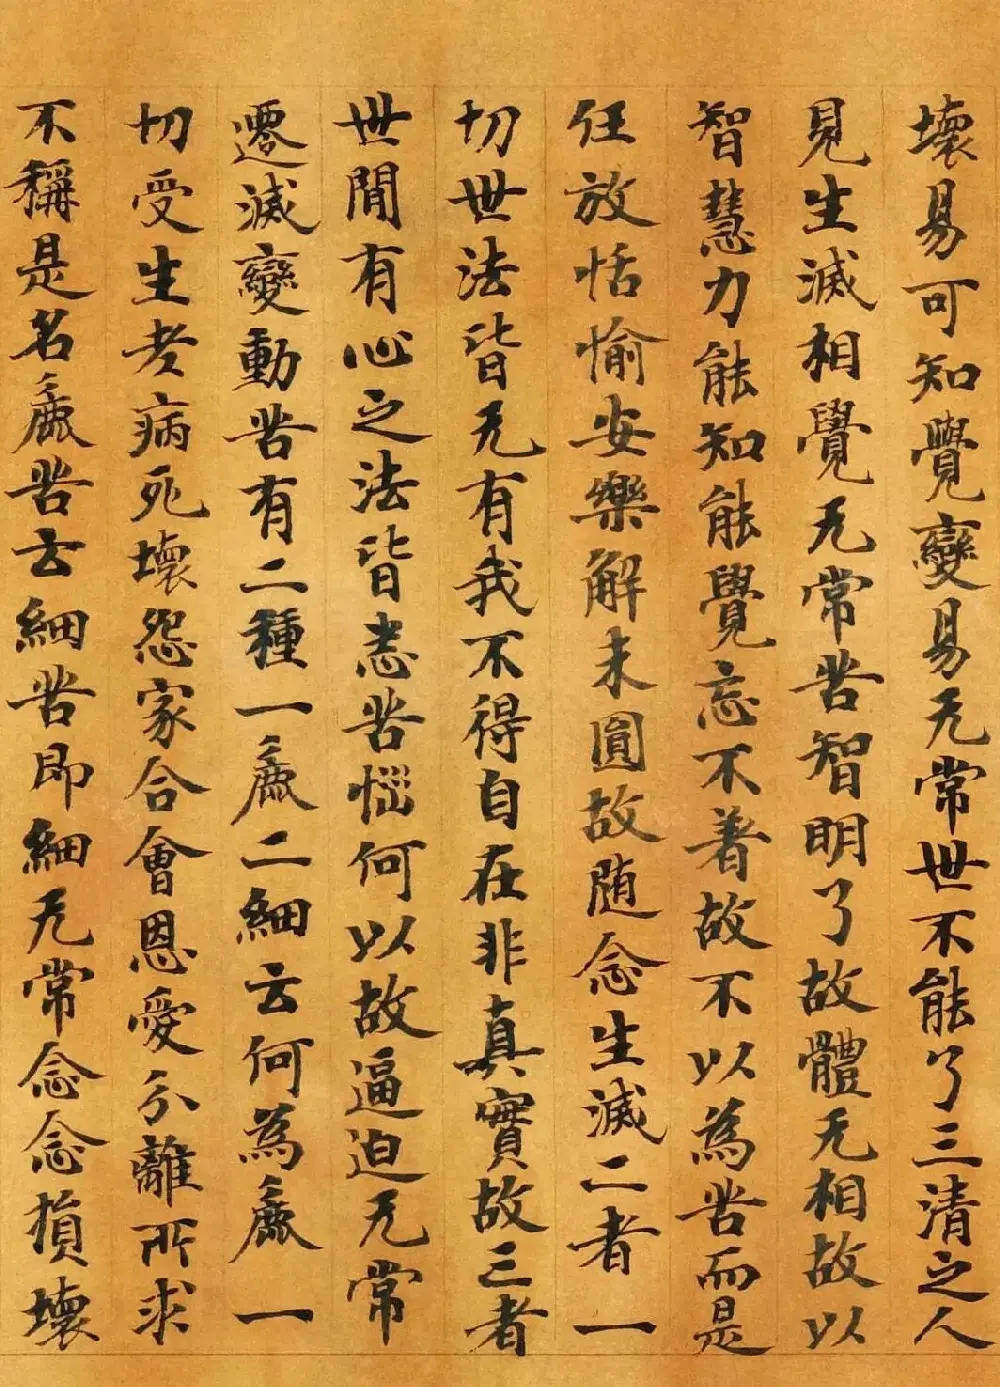 壞易可知覺變易无常世不能了三清之人
見生滅相覺无常苦智明了故體无相故以
智慧力能知能覺忘不著故不以為苦而是
任放恬愉安樂解未圓故随念生滅二者一
切世法皆无有我不得自在非真實故三者
世間有心之法皆悉苦惱何以故逼迫无常
遷滅變動苦有二種一麁二細云何為麁一
切受生老病死壞怨家合會恩愛分離所求
不稱是名麁苦云細苦即細无常念念損壞